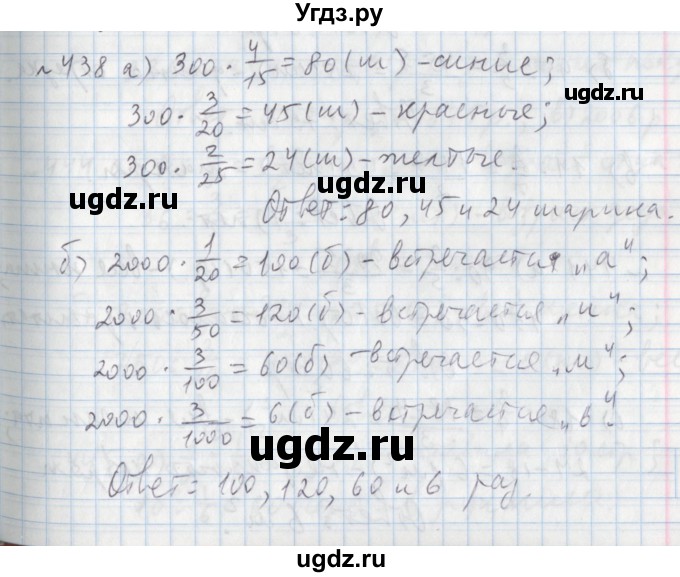 Угдз.ру
№438 а) 300 · 4/15 = 80 (ш) – синие;
300 · 3/20 = 45 (ш) – красные;
300 · 2/25 = 24 (ш) – желтые.
Ответ: 80, 45 и 24 шарика.
б) 2000 · 1/20 = 100 (б) – встречается „а“;
2000 · 3/50 = 120 (б) – встречается „и“;
2000 · 3/100 = 60 (б) – встречается „м“;
2000 · 3/1000 = 6 (б) – встречается „в“.
Ответ: 100, 120, 60 и 6 раз.
ugdz.ru
ugdz.ru
ugdz.ru
ugdz.ru
ugdz.ru
ugdz.ru
ugdz.ru
ugdz.ru
ugdz.ru